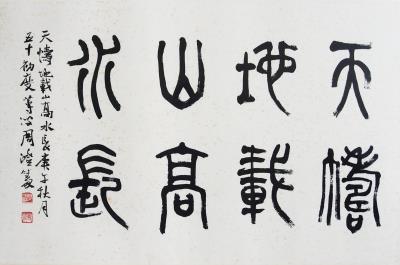 天幬
地載
山高
水長
天幬地載山高水長庚午秋月
五十初度
周澄篆